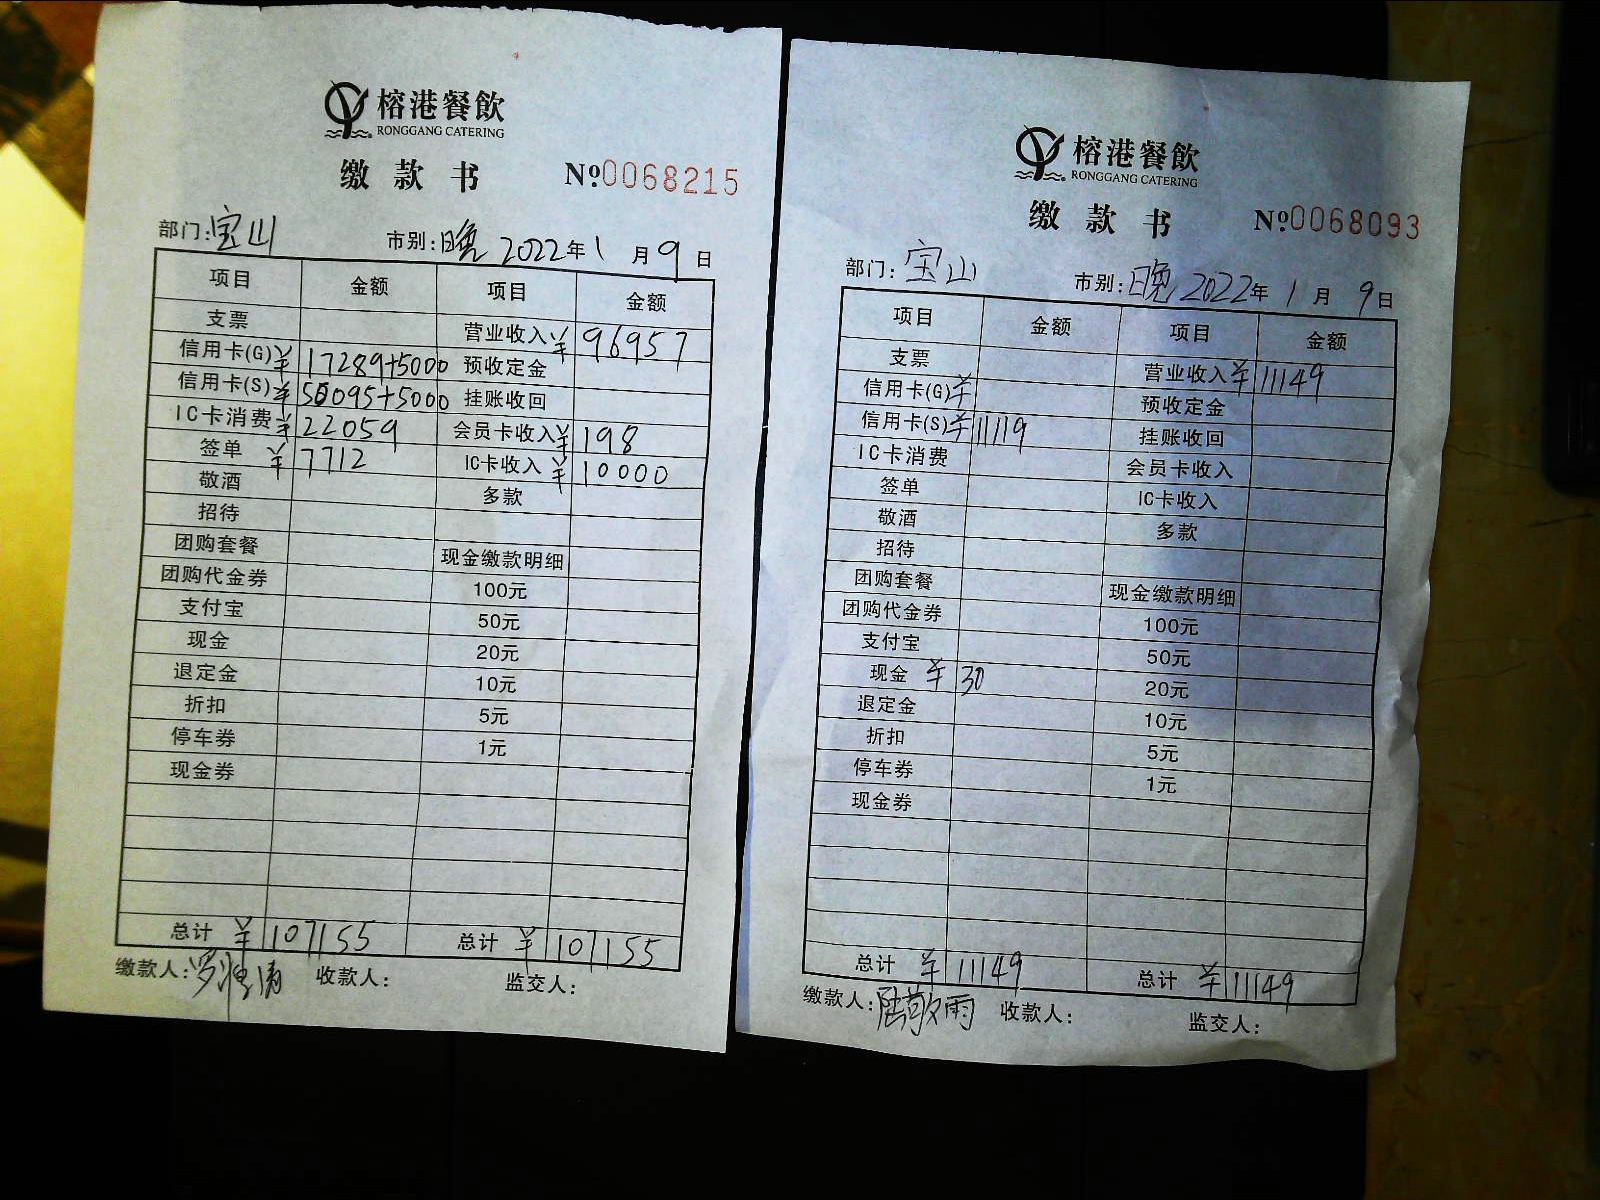 榕港餐飲
RONGGANG CATERING
缴款书 №0068215
部门:宝山 市别:晚 2022年1月9日
项目 金额 项目 金额
支票 营业收入 ¥96957
信用卡(G) ¥17289+5000 预收定金
信用卡(S) ¥50095+5000 挂账收回
IC卡消费 ¥22059 会员卡收入 ¥198
签单 ¥7712 IC卡收入 ¥10000
敬酒 多款
招待
团购套餐 现金缴款明细
团购代金券 100元
支付宝 50元
现金 20元
退定金 10元
折扣 5元
停车券 1元
现金券
总计 ¥107155 总计 ¥107155
缴款人: 收款人: 监交人:
榕港餐飲
RONGGANG CATERING
缴款书 №0068093
部门:宝山 市别:晚 2022年1月9日
项目 金额 项目 金额
支票 营业收入 ¥11149
信用卡(G) ¥ 预收定金
信用卡(S) ¥11119 挂账收回
IC卡消费 会员卡收入
签单 IC卡收入
敬酒 多款
招待
团购套餐 现金缴款明细
团购代金券 100元
支付宝 50元
现金 ¥30 20元
退定金 10元
折扣 5元
停车券 1元
现金券
总计 ¥11149 总计 ¥11149
缴款人:陆敬雨 收款人: 监交人: